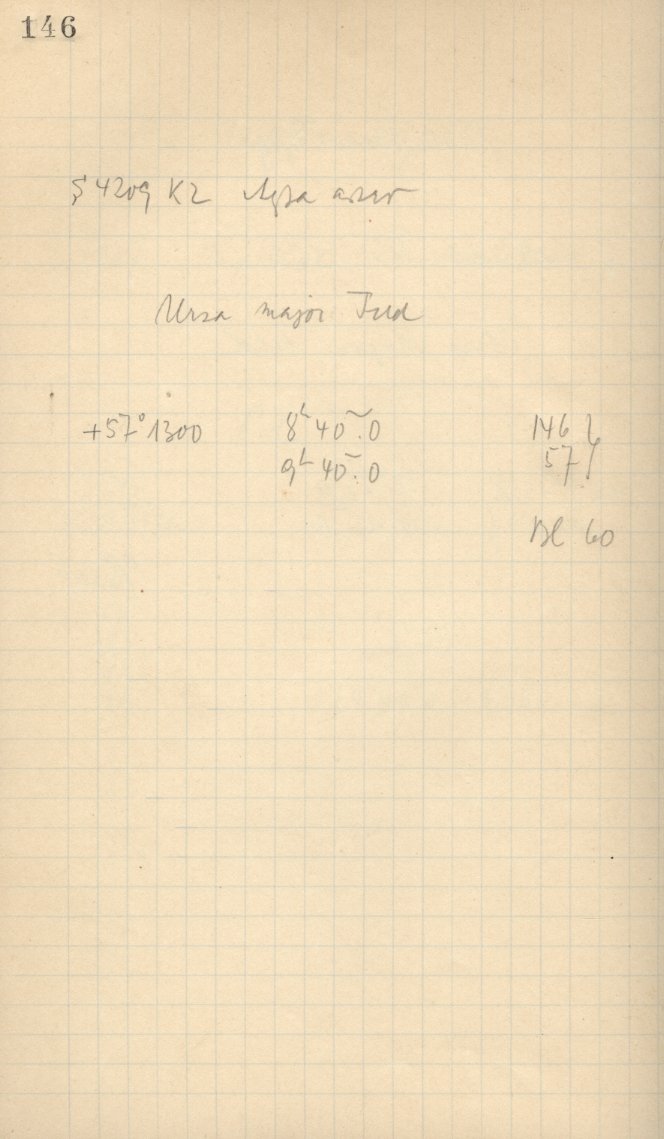 146
4209 K2
Ursa major Feld
+57° 1300 8h 40m.0 146
9h 40m.0 57
Bl 60